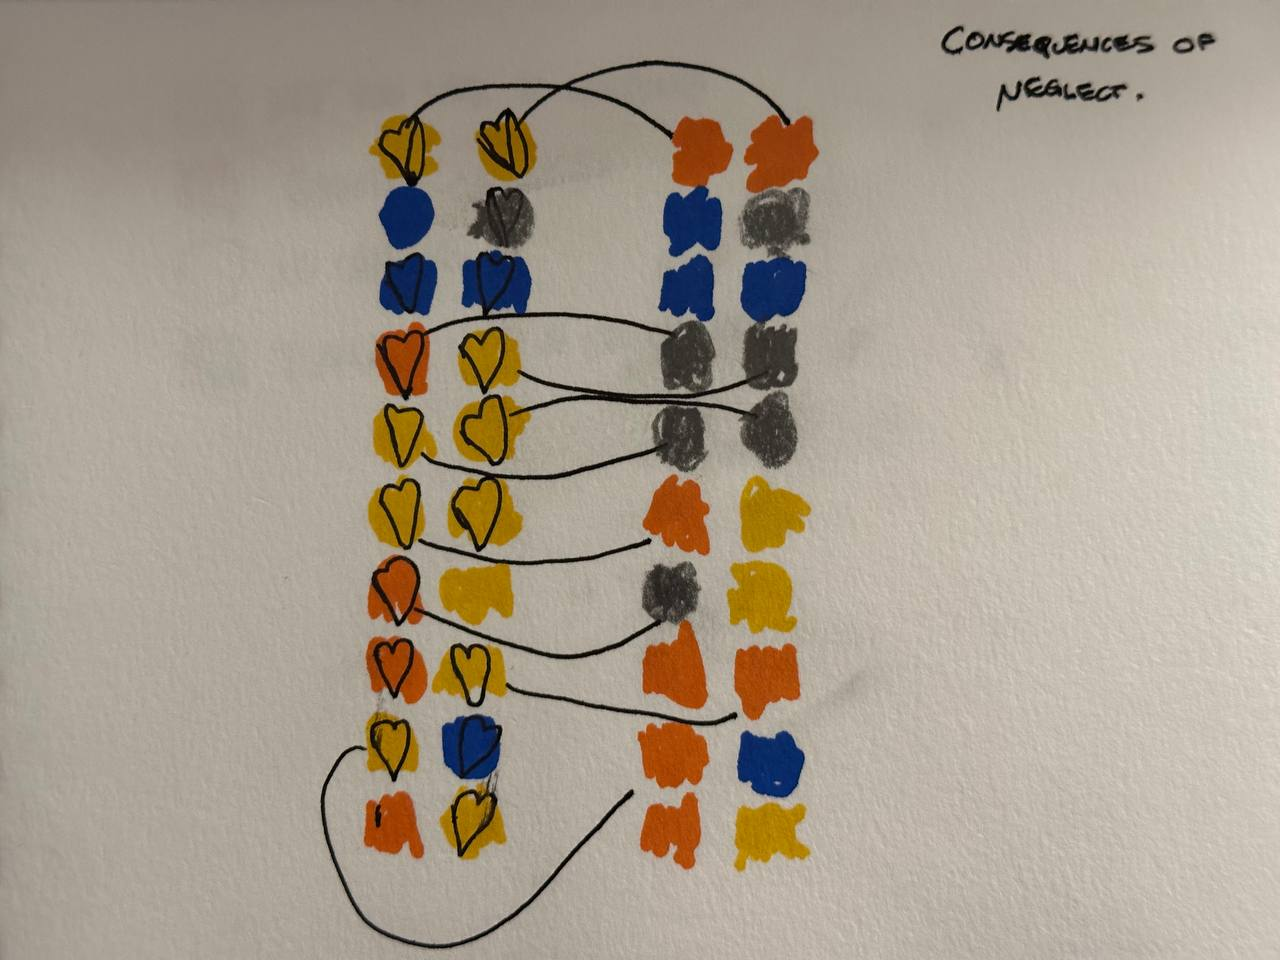 CONSEQUENCES OF
NEGLECT.